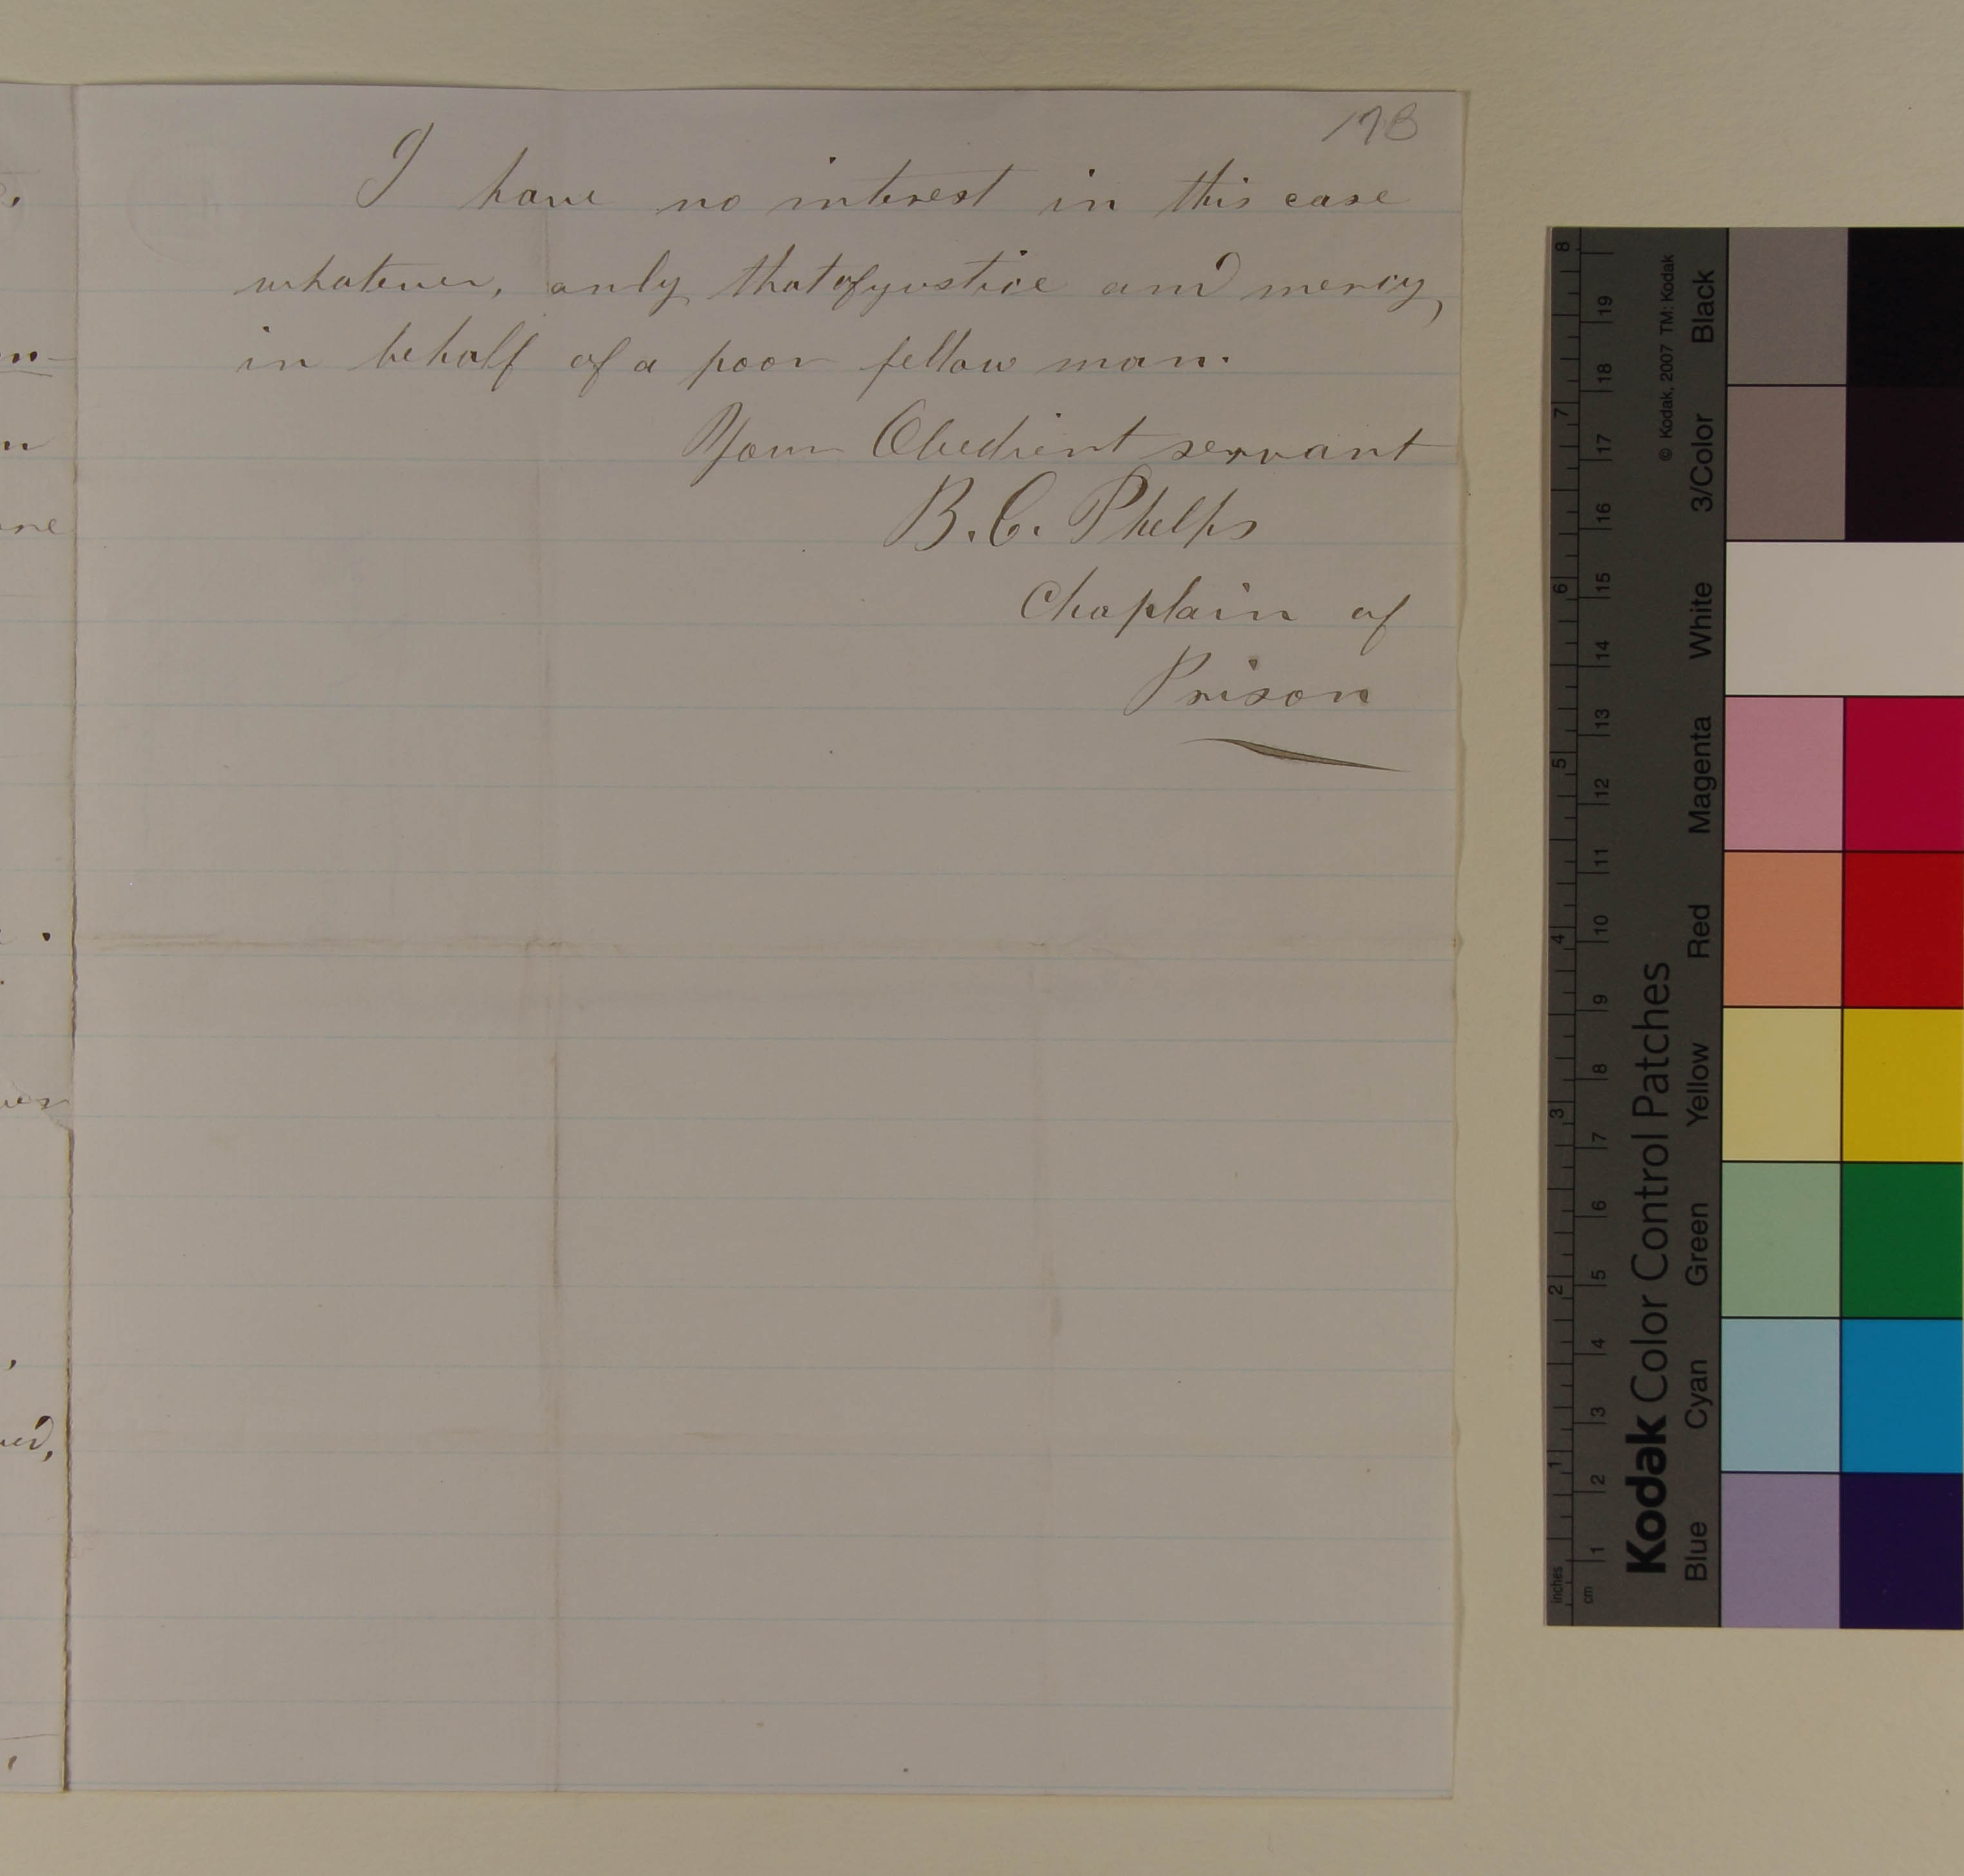 178
I have no interest in this case
whatever, only that of justice and mercy,
in behalf of a poor fellow man.
Your Obedient servant
B. C. Phelps
Chaplain of
Prison
ured,
Kodak Color Control Patches
© Kodak, 2007 TM: Kodak
Blue Cyan Green Yellow Red Magenta White 3/Color Black
inches 1 2 3 4 5 6 7 8
cm 1 2 3 4 5 6 7 8 9 10 11 12 13 14 15 16 17 18 19